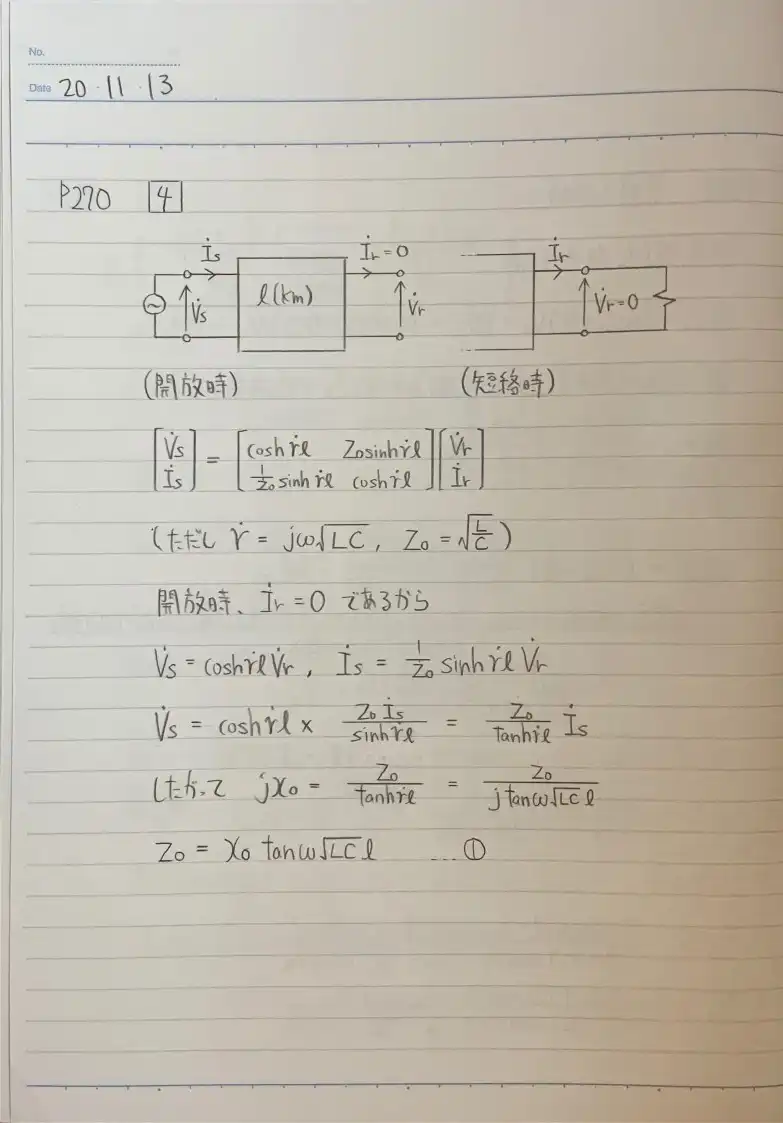 No.
Date 20・11・13
P270 4
İs İr=0 İr
l(km) V̇s V̇r V̇r=0
(開放時) (短絡時)
[V̇s İs] = [coshγ̇l Z₀sinhγ̇l 1/Z₀ sinhγ̇l coshγ̇l][V̇r İr]
(ただし γ̇ = jω√LC, Z₀ = √L/C)
開放時、İr = 0 であるから
V̇s = coshγ̇l V̇r, İs = 1/Z₀ sinhγ̇l V̇r
V̇s = coshγ̇l × Z₀İs/sinhγ̇l = Z₀/tanhγ̇l İs
したがって jx₀ = Z₀/tanhγ̇l = Z₀/j tanω√LC l
Z₀ = x₀ tanω√LC l …①